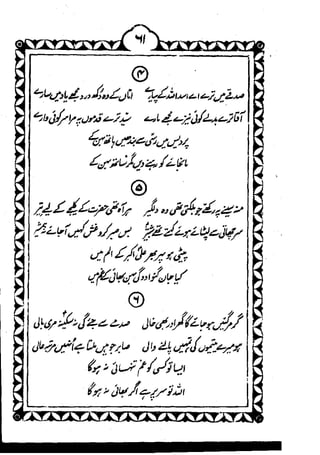 ۶۱
۴
صدقے میں ترے اے اسد اللہ کے پیارے اماں کے وہ دکھ درد مجھے یاد ہیں سارے
آقا ترے بدلے کوئی نیزے مجھے مارے سید ترے قدموں پہ مرا سر کوئی وارے
پردیس میں رسی سے بندھیں ہاتھ بہن کے
مانجائے کو رہنے دیں مگر ساتھ بہن کے
۵
منہ سینے پہ رکھے جو بلکتی تھی وہ دلگیر ہر آہ تھی حضرت کے کلیجے کے لیے تیر
سر چھاتی سے لپٹائے ہوئے کہتے تھے شبیر بس صبر کرو غش کہیں آ جائے نہ ہمشیر
پیٹی ہو بہت علی اکبر کے الم میں
کیا جان گنوا دو گی بہن بھائی کے غم میں
۶
گر مر گئیں ہو جائے گا گھر اور بھی خالی صدمے سے جئے گی نہ سکینہ مری بالی
ہو میرے یتیموں کی تمہیں پالنے والی صابر جو ہیں ملتا ہے انہیں مرتبہ عالی
ایسا تو کسی کو غم تنہائی نہ ہوگا
اللہ تو سر پر ہے اگر بھائی نہ ہوگا